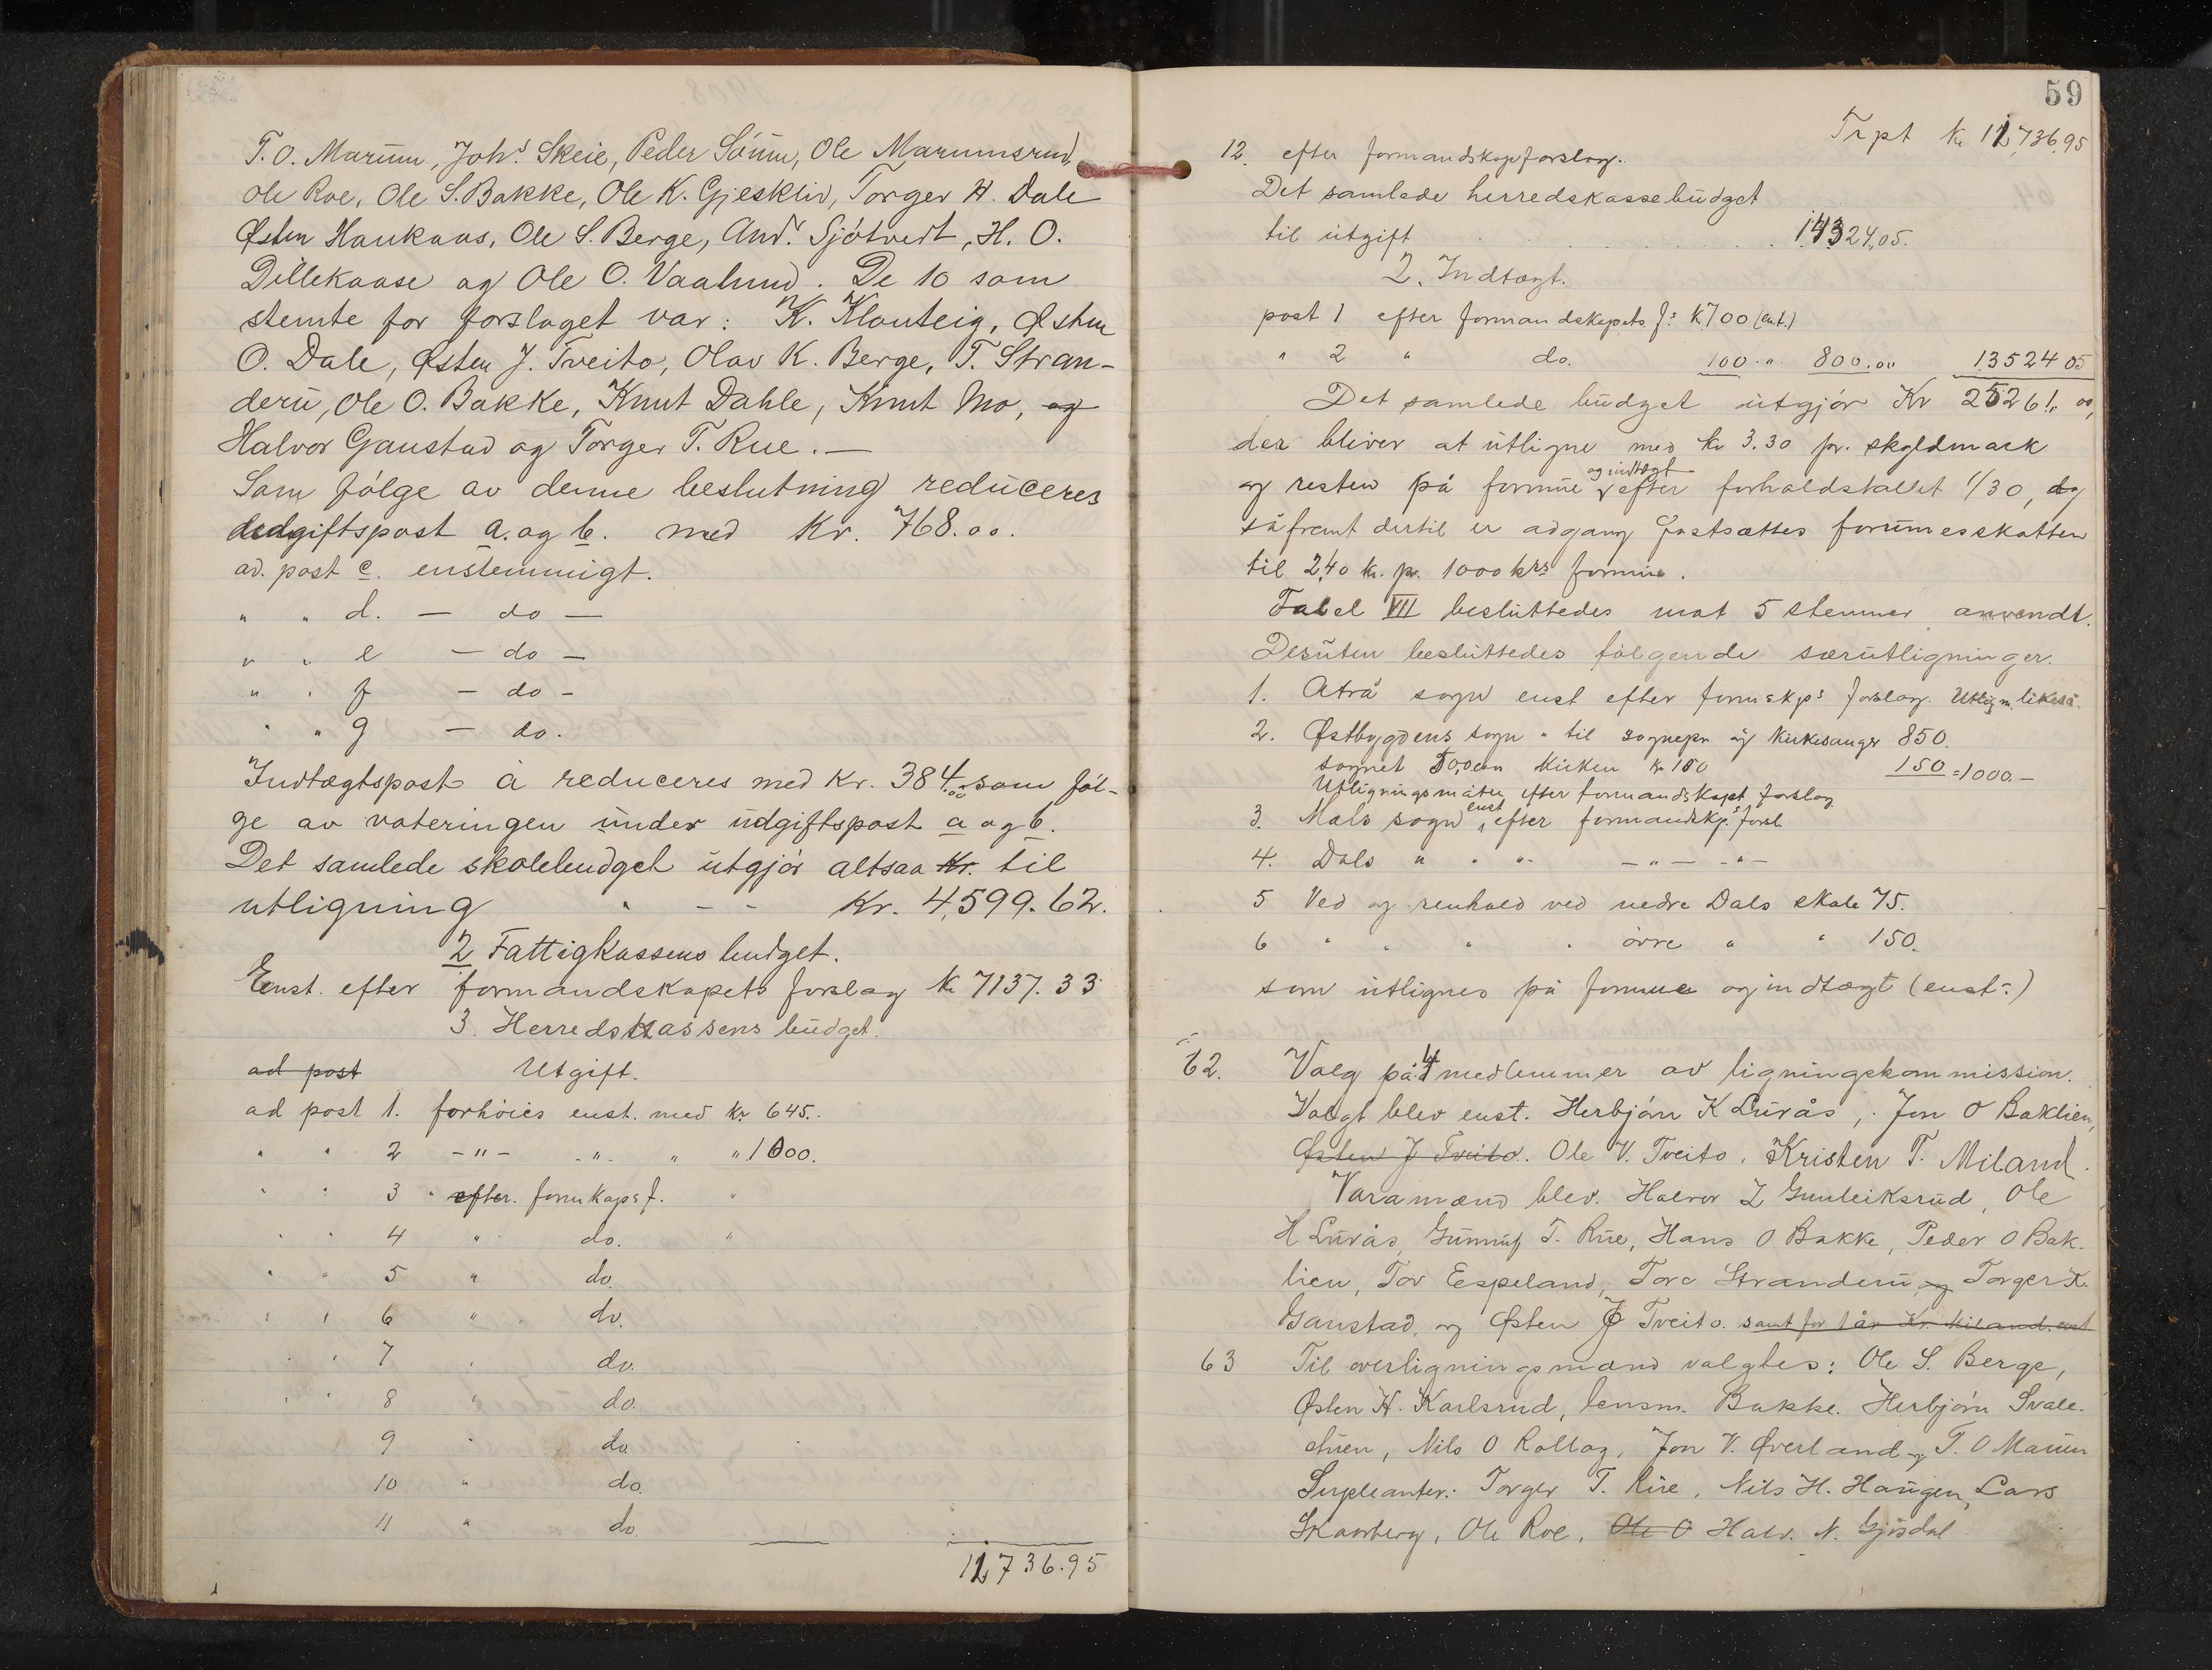 T. O. Marum, Johs Skeie, Peder Såum, Ole Marumsrud,
Ole Roe, Ole S. Bakke, Ole K. Gjesklid, Torger H. Dale
Østen Haukaas, Ole S. Berge, And. Sjötvedt, H. O.
Dillekaase og Ole O. Vaalund. De 10 som
stemte for forslaget var: K. Klonteig, Østen
O. Dale, Østen J. Tveito, Olav K. Berge, T. Stran-
deru, Ole O. Bakke, Knut Dahle, Knut Mo, og
Halvor Gaustad og Torger T. Rue. —
Som følge av denne beslutning reduceres
udgiftspost a. og b. med Kr. 768.00.
ad. post c. enstemmigt.
" " d. — do —
" " e — do —
" " f — do -
" " g — do.
Indtægtspost a reduceres med Kr. 384.00 som føl-
ge av voteringen under udgiftspost a og b.
Det samlede skolebudget utgjør altsaa Kr. til
utligning - - Kr. 4,599.62.
2 Fattigkassens budget.
Enst. efter formandskapets forslag Kr 7137.33
3. Herredskassens budget.
ad post Utgift.
ad post 1. forhøies enst. med kr. 645..
" " 2 -"- -"- " " 1000.
" " 3 " efter. formkaps f. "
" " 4 " do. "
" " 5 " do.
" " 6 " do.
" " 7 " do.
" " 8 " do.
9 " do
10 " do.
11 " do.
11,736.95
59
Trpt kr 11,736,95
12. efter formandskapforslag.
Det samlede herredskassebudget
til utgift . . . . 14324,05.
2. Indtægt.
post 1 efter formandskapets f: K 700 (ent.)
" 2 " do. 100 " 800.00 13524 05
Det samlede budget utgjør Kr 25261. 00,
der bliver at utligne med kr 3.30 pr. skyldmark
og indtægt
og resten på formue efter forholdstallet 1/30, og
såfremt dertil er adgang fastsættes formuesskatten
til 2,40 kr. pr. 1000 krs formue.
Tabel VII besluttedes mot 5 stemmer anvendt.
Desuten besluttedes følgende særutligninger.
1. Atrå sogn enst efter formskps forslag. Utlign. likeså.
2. Østbygdens sogn " til sognepr og kirkesanger 850.
sognet kirken kr 150 150 = 1000.—
Utligningsmåten efter formandskapt forslag
enst
3. Mæls sogn efter formandskp.s forsl.
4. Dals " " "- —"— -"—
5 Ved og renhold ved nedre Dals skole 75.
6 " " " " øvre " " 150.
som utlignes på formue og indtægt (enst:)
62. Valg på 4 medlemmer av ligningskommission.
Valgt blev enst. Herbjørn K Lurås, Jon O Baklien,
Østen J Tveito. Ole V. Tveito. Kristen T. Miland.
Varamænd blev. Halvor L Gunleiksrud, Ole
H Lurås, Gunnulf T. Rue, Hans O Bakke, Peder O Bak-
lien, Tov Espeland, Tore Stranderu og Torger K.
Gaustad, og Østen J Tveito. samt for 1 år Kr. Miland. enst
63 Til overligningsmænd valgtes: Ole S. Berge,
Østen H. Karlsrud, lensm. Bakke. Herbjørn Svale-
stuen, Nils O Rollag, Jon V. Øverland og T. O Marum
Supleanter: Torger T. Rue, Nils H. Haugen, Lars
Skaarberg, Ole Roe, Ole O Halv. N. Gjøsdal